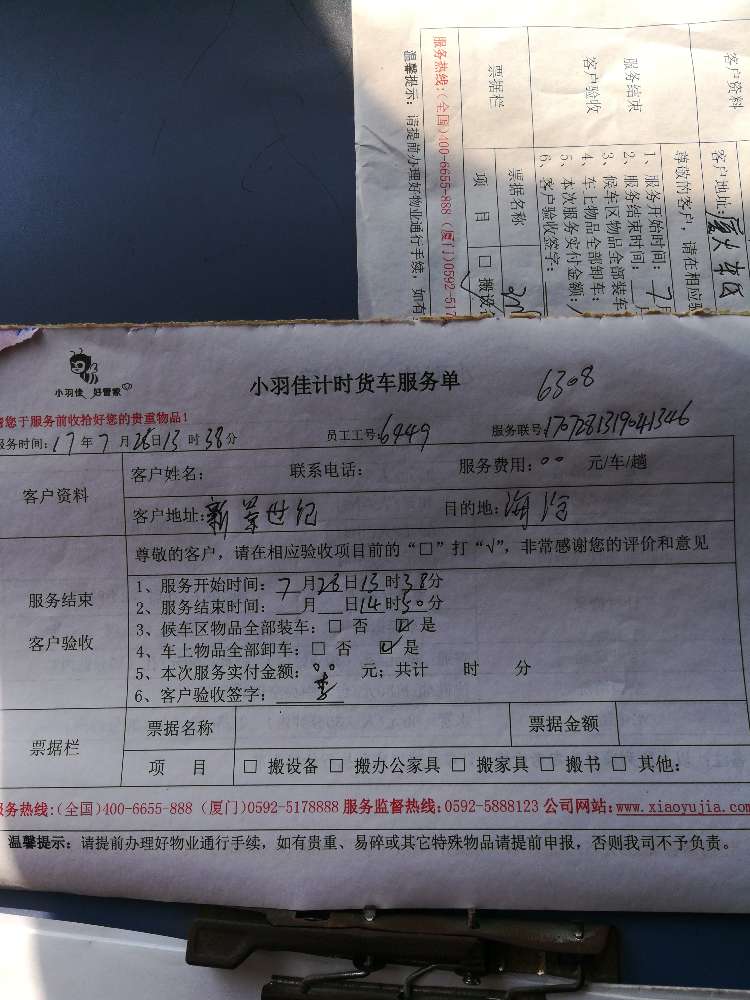 客户资料
客户地址:厦大本氏
服务结束
客户验收
尊敬的客户，请在相应验
1、服务开始时间：7月
2、服务结束时间：
3、候车区物品全部装车
4、车上物品全部卸车：
5、本次服务实付金额：
6、客户验收签字：
票据栏
票据名称
项 目 □ 搬设备
服务热线:(全国)400-6655-888 (厦门)0592-517
温馨提示：请提前办理好物业通行手续，如有
小羽佳 好管家
小羽佳计时货车服务单
6308
请您于服务前收拾好您的贵重物品!
服务时间:17年7月28日13时38分 员工工号:6449 服务联号:1707281319041346
客户资料
客户姓名： 联系电话： 服务费用：00 元/车/趟
客户地址:新景世纪 目的地:海沧
服务结束
客户验收
尊敬的客户，请在相应验收项目前的“□”打“√”，非常感谢您的评价和意见
1、服务开始时间：7月28日13时38分
2、服务结束时间：__月__日14时50分
3、候车区物品全部装车：□ 否 ☑ 是
4、车上物品全部卸车：□ 否 ☑ 是
5、本次服务实付金额：00 元；共计 时 分
6、客户验收签字：李
票据栏
票据名称 票据金额
项 目 □ 搬设备 □ 搬办公家具 □ 搬家具 □ 搬书 □ 其他:
服务热线:(全国)400-6655-888 (厦门)0592-5178888 服务监督热线:0592-5888123 公司网站:www.xiaoyujia.com
温馨提示：请提前办理好物业通行手续，如有贵重、易碎或其它特殊物品请提前申报，否则我司不予负责。